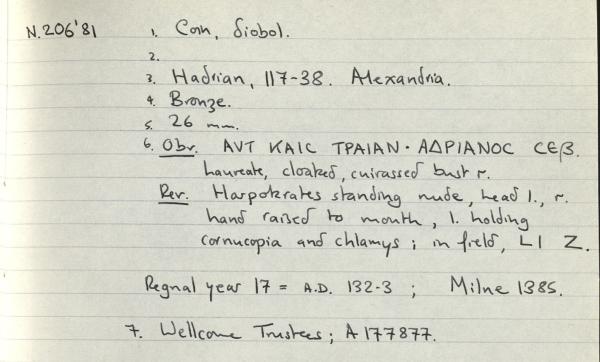 N.206'81 1. Coin, diobol.
2.
3. Hadrian, 117-38. Alexandria.
4. Bronze.
5. 26 mm.
6. Obv. ΑVΤ ΚΑΙC ΤΡΑΙΑΝ · ΑΔΡΙΑΝΟC CЄβ.
Laureate, cloaked, cuirassed bust r.
Rev. Harpokrates standing nude, head l., r.
hand raised to mouth, l. holding
cornucopia and chlamys; in field, L I Z.
Regnal year 17 = A.D. 132-3; Milne 1385.
7. Wellcome Trustees; A177877.